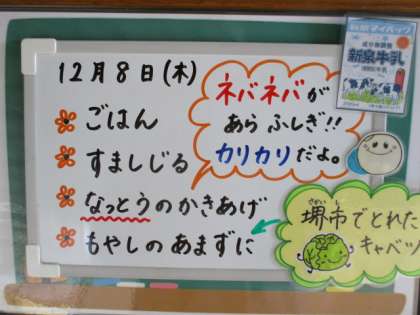 12月8日(木)
ごはん
すましじる
なっとうのかきあげ
もやしのあまずに
ネバネバが
あらふしぎ!!
カリカリだよ。
新泉牛乳
さかいし
堺市でとれた
キャベツ